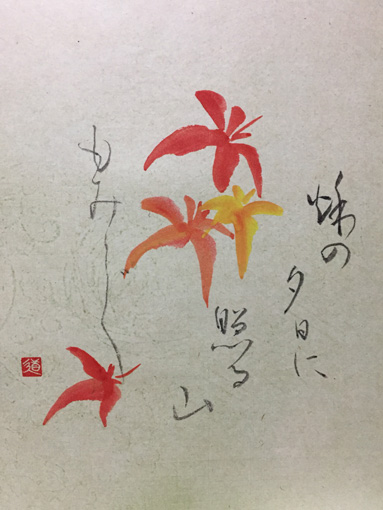 秋の
夕日に
照る
山
もみじ
道